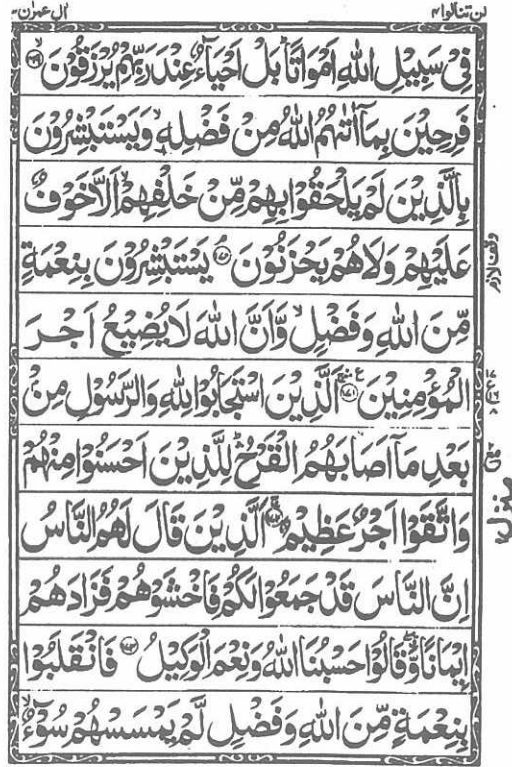 لن تنالوا ۴
اٰل عمرٰن ۳
فِیْ سَبِیْلِ اللّٰهِ اَمْوَاتًا ؕ بَلْ اَحْیَآءٌ عِنْدَ رَبِّهِمْ یُرْزَقُوْنَ ﴿۱۶۹﴾ ۙ
فَرِحِیْنَ بِمَاۤ اٰتٰىهُمُ اللّٰهُ مِنْ فَضْلِهٖ ۙ وَیَسْتَبْشِرُوْنَ
بِالَّذِیْنَ لَمْ یَلْحَقُوْا بِهِمْ مِّنْ خَلْفِهِمْ ۙ اَلَّا خَوْفٌ
عَلَیْهِمْ وَلَا هُمْ یَحْزَنُوْنَ ﴿۱۷۰﴾ یَسْتَبْشِرُوْنَ بِنِعْمَةٍ
مِّنَ اللّٰهِ وَفَضْلٍ ۙ وَّاَنَّ اللّٰهَ لَا یُضِیْعُ اَجْرَ
الْمُؤْمِنِیْنَ ﴿۱۷۱﴾ اَلَّذِیْنَ اسْتَجَابُوْا لِلّٰهِ وَالرَّسُوْلِ مِنْۢ
بَعْدِ مَاۤ اَصَابَهُمُ الْقَرْحُ ؕ لِلَّذِیْنَ اَحْسَنُوْا مِنْهُمْ
وَاتَّقَوْا اَجْرٌ عَظِیْمٌ ﴿۱۷۲﴾ اَلَّذِیْنَ قَالَ لَهُمُ النَّاسُ
اِنَّ النَّاسَ قَدْ جَمَعُوْا لَكُمْ فَاخْشَوْهُمْ فَزَادَهُمْ
اِیْمَانًا ۖۗ وَّقَالُوْا حَسْبُنَا اللّٰهُ وَنِعْمَ الْوَكِیْلُ ﴿۱۷۳﴾ فَانْقَلَبُوْا
بِنِعْمَةٍ مِّنَ اللّٰهِ وَفَضْلٍ لَّمْ یَمْسَسْهُمْ سُوْٓءٌ ۙ
وقف لازم
منزل ۱